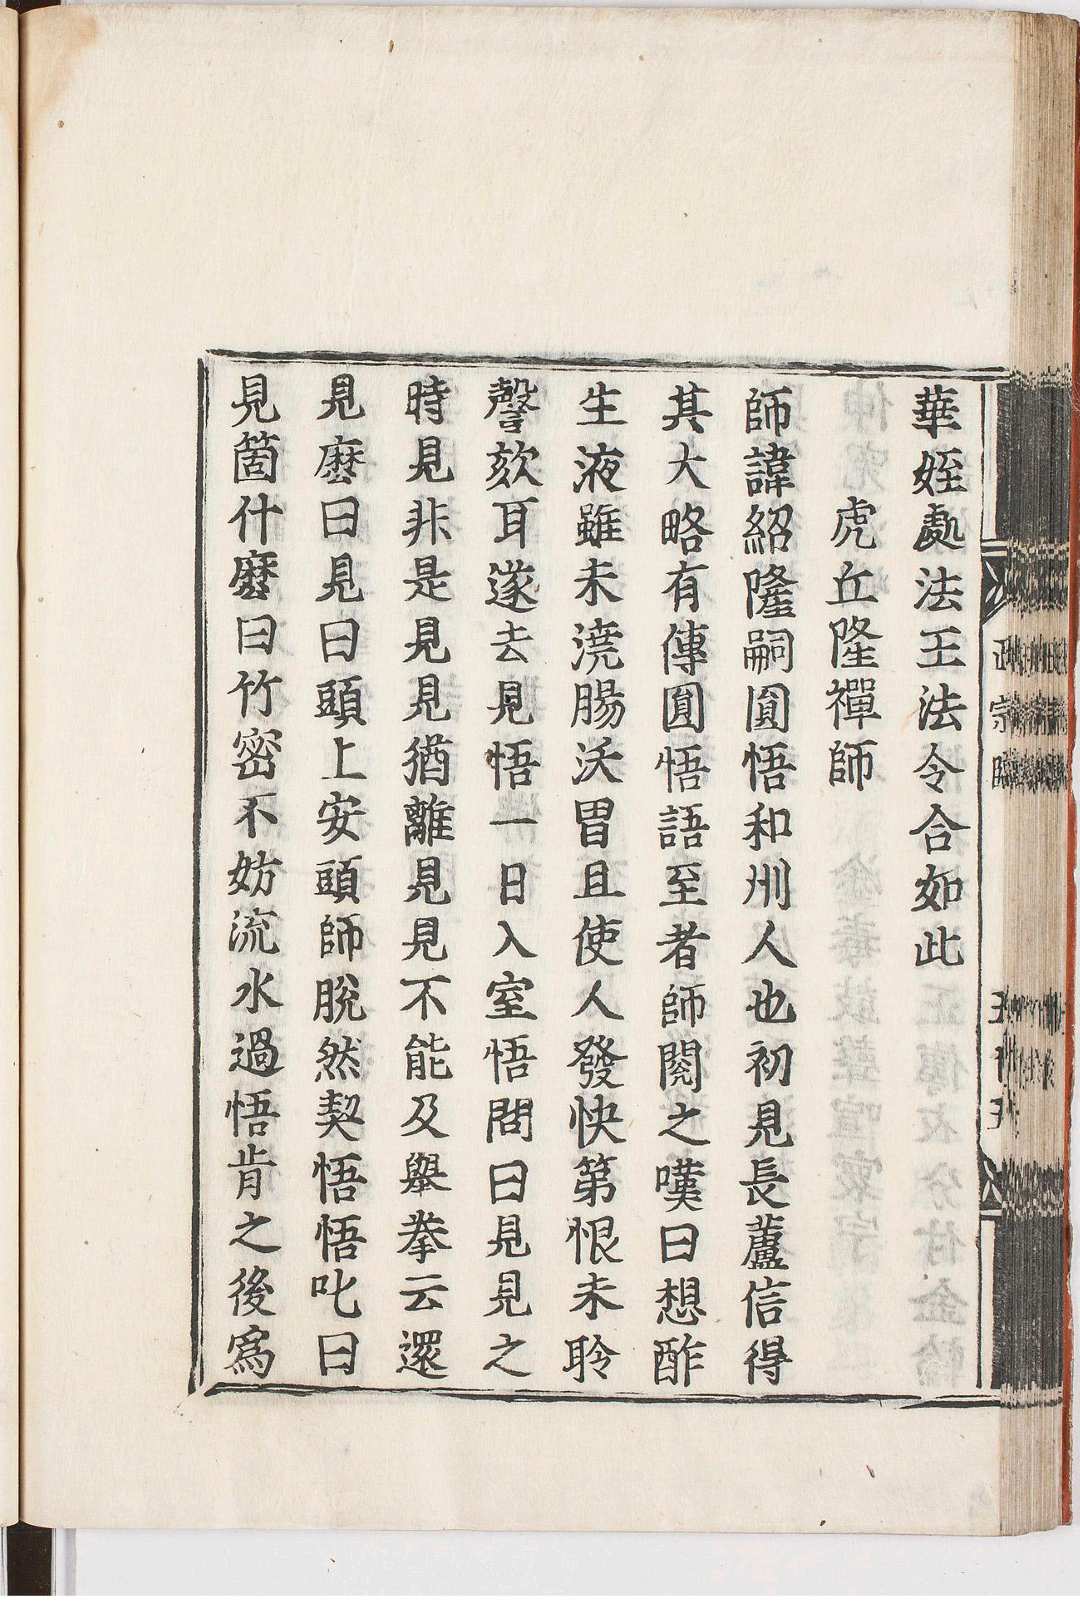 華姪處法王法令合如此
虎丘隆禪師
師諱紹隆嗣圓悟和州人也初見長蘆信得
其大略有傳圓悟語至者師閱之嘆曰想酢
生液雖未澆腸沃胃且使人發快第恨未聆
謦欬耳遂去見悟一日入室悟問曰見見之
時見非是見見猶離見見不能及舉拳云還
見麽曰見曰頭上安頭師脫然契悟悟叱曰
見箇什麽曰竹密不妨流水過悟肯之後爲
正宗